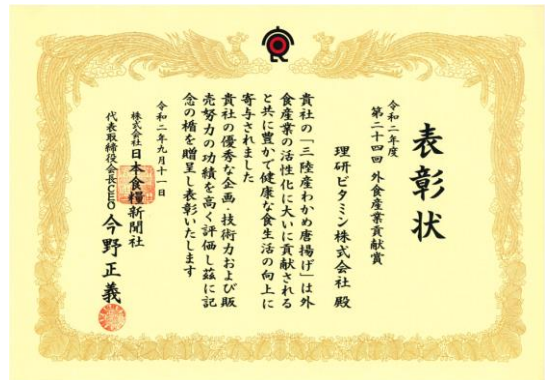 表彰状
令和二年度
第二十四回 外食産業貢献賞
理研ビタミン株式会社 殿
貴社の「三陸産わかめ唐揚げ」は外
食産業の活性化に大いに貢献される
と共に豊かで健康な食生活の向上に
寄与されました
貴社の優秀な企画・技術力および販
売努力の功績を高く評価し茲に記
念の楯を贈呈し表彰いたします
令和二年九月十一日
株式会社日本食糧新聞社
代表取締役会長CEO 今野正義